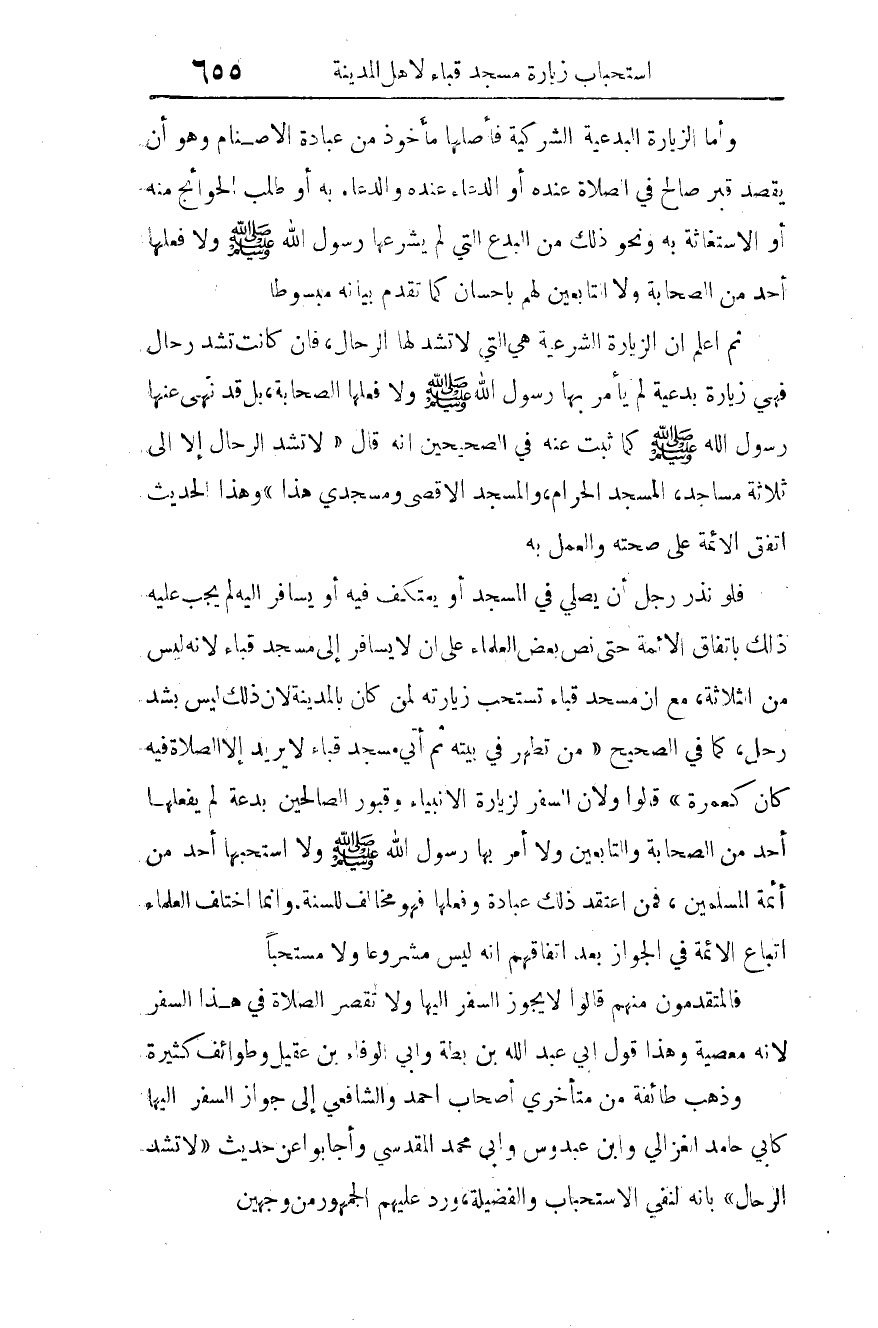 استحباب زيارة مسجد قباء لاهل المدينة ٦٥٥
وأما الزيارة البدعية الشركية فأصلها مأخوذ من عبادة الاصـنام وهو أن
يقصد قبر صالح في الصلاة عنده أو الدعاء عنده والدعاء به أو طلب الحوائج منه
أو الاستغاثة به ونحو ذلك من البدع التي لم يشرعها رسول الله ﷺ ولا فعلها
أحد من الصحابة ولا التابعين لهم باحسان كما تقدم بيانه مبسوطا
ثم اعلم ان الزيارة الشرعية هي التي لا تشد لها الرحال، فان كانت تشد رحال
فهي زيارة بدعية لم يأمر بها رسول الله ﷺ ولا فعلها الصحابة، بل قد نهى عنها
رسول الله ﷺ كما ثبت عنه في الصحيحين انه قال « لا تشد الرحال إلا الى
ثلاثة مساجد، المسجد الحرام، والمسجد الاقصى ومسجدي هذا » وهذا الحديث
اتفق الائمة على صحته والعمل به
فلو نذر رجل أن يصلي في المسجد أو يعتكف فيه أو يسافر اليه لم يجب عليه
ذلك باتفاق الائمة حتى نص بعض العلماء على ان لا يسافر إلى مسجد قباء لانه ليس
من الثلاثة، مع ان مسجد قباء تستحب زيارته لمن كان بالمدينة لان ذلك ليس بشد
رحل، كما في الصحيح « من تطهر في بيته ثم أتى مسجد قباء لا يريد إلا الصلاة فيه
كان كعمرة » قالوا ولان السفر لزيارة الانبياء وقبور الصالحين بدعة لم يفعلهـا
أحد من الصحابة والتابعين ولا أمر بها رسول الله ﷺ ولا استحبها أحد من
أئمة المسلمين ، فمن اعتقد ذلك عبادة وفعلها فهو مخالف للسنة. وانما اختلف العلماء
اتباع الائمة في الجواز بعد اتفاقهم انه ليس مشروعا ولا مستحباً
فالمتقدمون منهم قالوا لا يجوز السفر اليها ولا تُقصر الصلاة في هـذا السفر
لانه معصية وهذا قول ابي عبد الله بن بطة وابي الوفاء بن عقيل وطوائف كثيرة
وذهب طائفة من متأخري أصحاب احمد والشافعي إلى جواز السفر اليها
كابي حامد الغزالي وابن عبدوس وابي محمد المقدسي وأجابوا عن حديث « لا تشد
الرحال» بانه لنفي الاستحباب والفضيلة، ورد عليهم الجمهور من وجهين